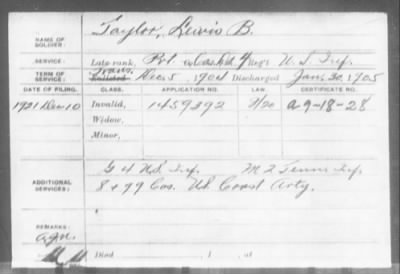 Taylor, Lewis B.
NAME OF SOLDIER:
SERVICE: Late rank, Pvt Cas. Dt 4 Reg't U. S. Inf.
TERM OF SERVICE: Trans. Enlisted Dec. 5 1904 Discharged Jan. 30, 1905
DATE OF FILING. CLASS. APPLICATION NO. LAW. CERTIFICATE NO.
1921 Dec 10 Invalid, 1459392 a 9-18-28
Widow,
Minor,
ADDITIONAL SERVICES: G 4 U.S. Inf. M 2 Tenn Inf.
8 + 79 Cos. U.S. Coast Arty.
REMARKS:
Died , 1 , at